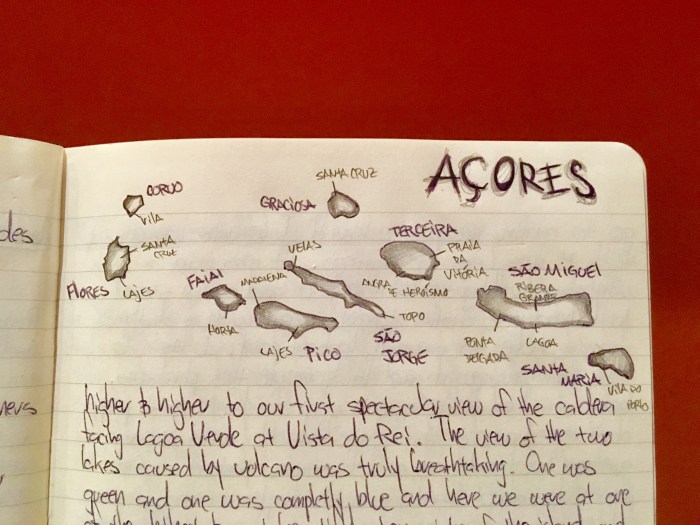 AÇORES
CORVO
VILA
SANTA CRUZ
GRACIOSA
SANTA
CRUZ
FLORES
LAJES
FAIAL
HORTA
MADALENA
LAJES
PICO
VELAS
TOPO
SÃO
JORGE
TERCEIRA
PRAIA
DA
VITÓRIA
ANGRA
DE HEROÍSMO
SÃO MIGUEL
RIBERA
GRANDE
PONTA
DELGADA
LAGOA
SANTA
MARIA
VILA DO
PORTO
higher & higher to our first spectacular view of the caldera
facing Lagoa Verde at Vista do Rei. The view of the two
lakes caused by volcano was truly breathtaking. One was
green and one was completly blue and here we were at one